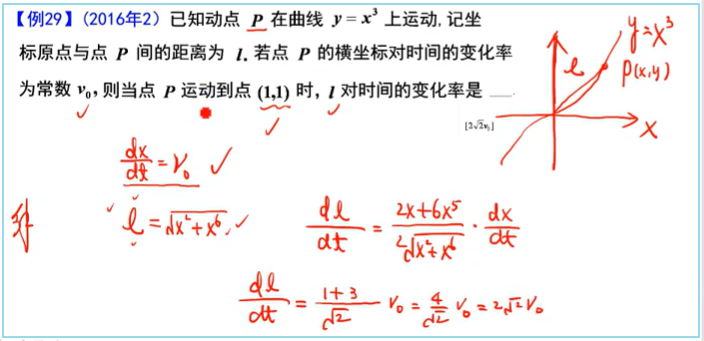 【例29】(2016年2) 已知动点 P 在曲线 y = x³ 上运动, 记坐
标原点与点 P 间的距离为 l. 若点 P 的横坐标对时间的变化率
为常数 v₀, 则当点 P 运动到点 (1,1) 时, l 对时间的变化率是 ___.
[2√2v₀]
y=x³
l
P(x,y)
x
dx/dt = v₀ ✓
解 l = √(x²+x⁶),
dl/dt = (2x+6x⁵)/(2√(x²+x⁶)) · dx/dt
dl/dt = (1+3)/√2 v₀ = 4/√2 v₀ = 2√2 v₀